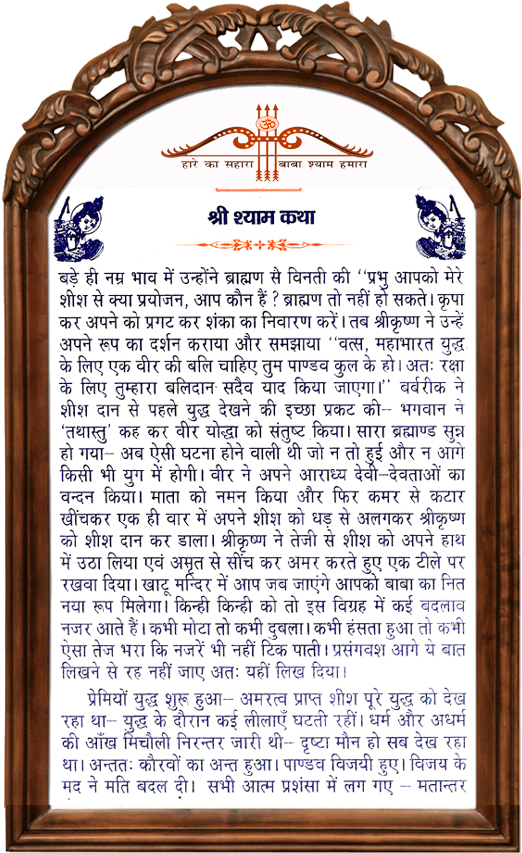 हारे का सहारा बाबा श्याम हमारा
श्री श्याम कथा
बड़े ही नम्र भाव में उन्होंने ब्राह्मण से विनती की ‘‘प्रभु आपको मेरे
शीश से क्या प्रयोजन, आप कौन हैं ? ब्राह्मण तो नहीं हो सकते। कृपा
कर अपने को प्रगट कर शंका का निवारण करें। तब श्रीकृष्ण ने उन्हें
अपने रूप का दर्शन कराया और समझाया ‘‘वत्स, महाभारत युद्ध
के लिए एक वीर की बलि चाहिए तुम पाण्डव कुल के हो। अतः रक्षा
के लिए तुम्हारा बलिदान सदैव याद किया जाएगा।’’ बर्वरीक ने
शीश दान से पहले युद्ध देखने की इच्छा प्रकट की– भगवान ने
‘तथास्तु’ कह कर वीर योद्धा को संतुष्ट किया। सारा ब्रह्माण्ड सुन्न
हो गया– अब ऐसी घटना होने वाली थी जो न तो हुई और न आगे
किसी भी युग में होगी। वीर ने अपने आराध्य देवी–देवताओं का
वन्दन किया। माता को नमन किया और फिर कमर से कटार
खींचकर एक ही वार में अपने शीश को धड़ से अलगकर श्रीकृष्ण
को शीश दान कर डाला। श्रीकृष्ण ने तेजी से शीश को अपने हाथ
में उठा लिया एवं अमृत से सींच कर अमर करते हुए एक टीले पर
रखवा दिया। खाटू मन्दिर में आप जब जाएंगे आपको बाबा का नित
नया रूप मिलेगा। किन्ही किन्ही को तो इस विग्रह में कई बदलाव
नजर आते हैं। कभी मोटा तो कभी दुबला। कभी हंसता हुआ तो कभी
ऐसा तेज भरा कि नजरें भी नहीं टिक पाती। प्रसंगवश आगे ये बात
लिखने से रह नहीं जाए अतः यहीं लिख दिया।
प्रेमियों युद्ध शुरू हुआ– अमरत्व प्राप्त शीश पूरे युद्ध को देख
रहा था– युद्ध के दौरान कई लीलाएँ घटती रहीं। धर्म और अधर्म
की आँख मिचौली निरन्तर जारी थी– दृष्टा मौन हो सब देख रहा
था। अन्ततः कौरवों का अन्त हुआ। पाण्डव विजयी हुए। विजय के
मद ने मति बदल दी। सभी आत्म प्रशंसा में लग गए – मतान्तर